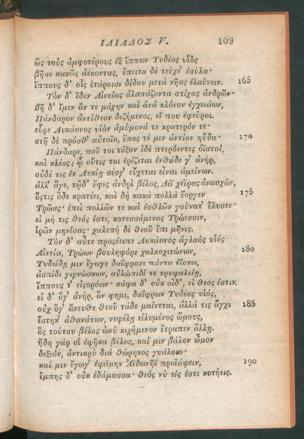 ΙΛΙΑΔΟΣ V. 109
ὣς τοὺς ἀμφοτέρους ἐξ ἵππων Τυδέος υἱὸς
βῆσε κακῶς ἀέκοντας, ἔπειτα δὲ τεύχε' ἐσύλα·
ἵππους δ' οἷς ἑτάροισι δίδου μετὰ νῆας ἐλαύνειν. 165
Τὸν δ' ἴδεν Αἰνείας ἀλαπάζοντα στίχας ἀνδρῶν·
βῆ δ' ἴμεν ἄν τε μάχην καὶ ἀνὰ κλόνον ἐγχειάων,
Πάνδαρον ἀντίθεον διζήμενος, εἴ που ἐφεύροι.
εὗρε Λυκάονος υἱὸν ἀμύμονά τε κρατερόν τε·
στῆ δὲ πρόσθ' αὐτοῖο, ἔπος τέ μιν ἀντίον ηὔδα· 170
Πάνδαρε, ποῦ τοι τόξον ἰδὲ πτερόεντες ὀϊστοί,
καὶ κλέος; ᾧ οὔτις τοι ἐρίζεται ἐνθάδε γ' ἀνήρ,
οὐδέ τις ἐν Λυκίῃ σέογ' εὔχεται εἶναι ἀμείνων.
ἀλλ' ἄγε, τῷδ' ἔφες ἀνδρὶ βέλος, Διῒ χεῖρας ἀνασχών,
ὅστις ὅδε κρατέει, καὶ δὴ κακὰ πολλὰ ἔοργεν 175
Τρῶας· ἐπεὶ πολλῶν τε καὶ ἐσθλῶν γούνατ' ἔλυσεν·
εἰ μή τις θεός ἐστι, κοτεσσάμενος Τρώεσσιν,
ἱρῶν μηνίσας· χαλεπὴ δὲ θεοῦ ἔπι μῆνις.
Τὸν δ' αὖτε προσέειπε Λυκάονος ἀγλαὸς υἱός
Αἰνεία, Τρώων βουληφόρε χαλκοχιτώνων, 180
Τυδείδῃ μιν ἔγωγε δαΐφρονι πάντα ἐΐσκω,
ἀσπίδι γιγνώσκων, αὐλώπιδί τε τρυφαλείῃ,
ἵππους τ' εἰσορόων· σάφα δ' οὐκ οἶδ', εἰ θεός ἐστιν.
εἰ δ' ὅγ' ἀνήρ, ὅν φημι, δαΐφρων Τυδέος υἱός,
οὐχ ὅγ' ἄνευθε θεοῦ τάδε μαίνεται, ἀλλά τις ἄγχι 185
ἕστηκ' ἀθανάτων, νεφέλῃ εἰλυμένος ὤμους,
ὃς τούτου βέλος ὠκὺ κιχήμενον ἔτραπεν ἄλλῃ.
ἤδη γάρ οἱ ἐφῆκα βέλος, καί μιν βάλον ὦμον
δεξιόν, ἀντικρὺ διὰ θώρηκος γυάλοιο·
καί μιν ἔγωγ' ἐφάμην Ἀϊδωνῆϊ προϊάψειν, 190
ἔμπης δ' οὐκ ἐδάμασσα· θεός νύ τίς ἐστι κοτήεις.